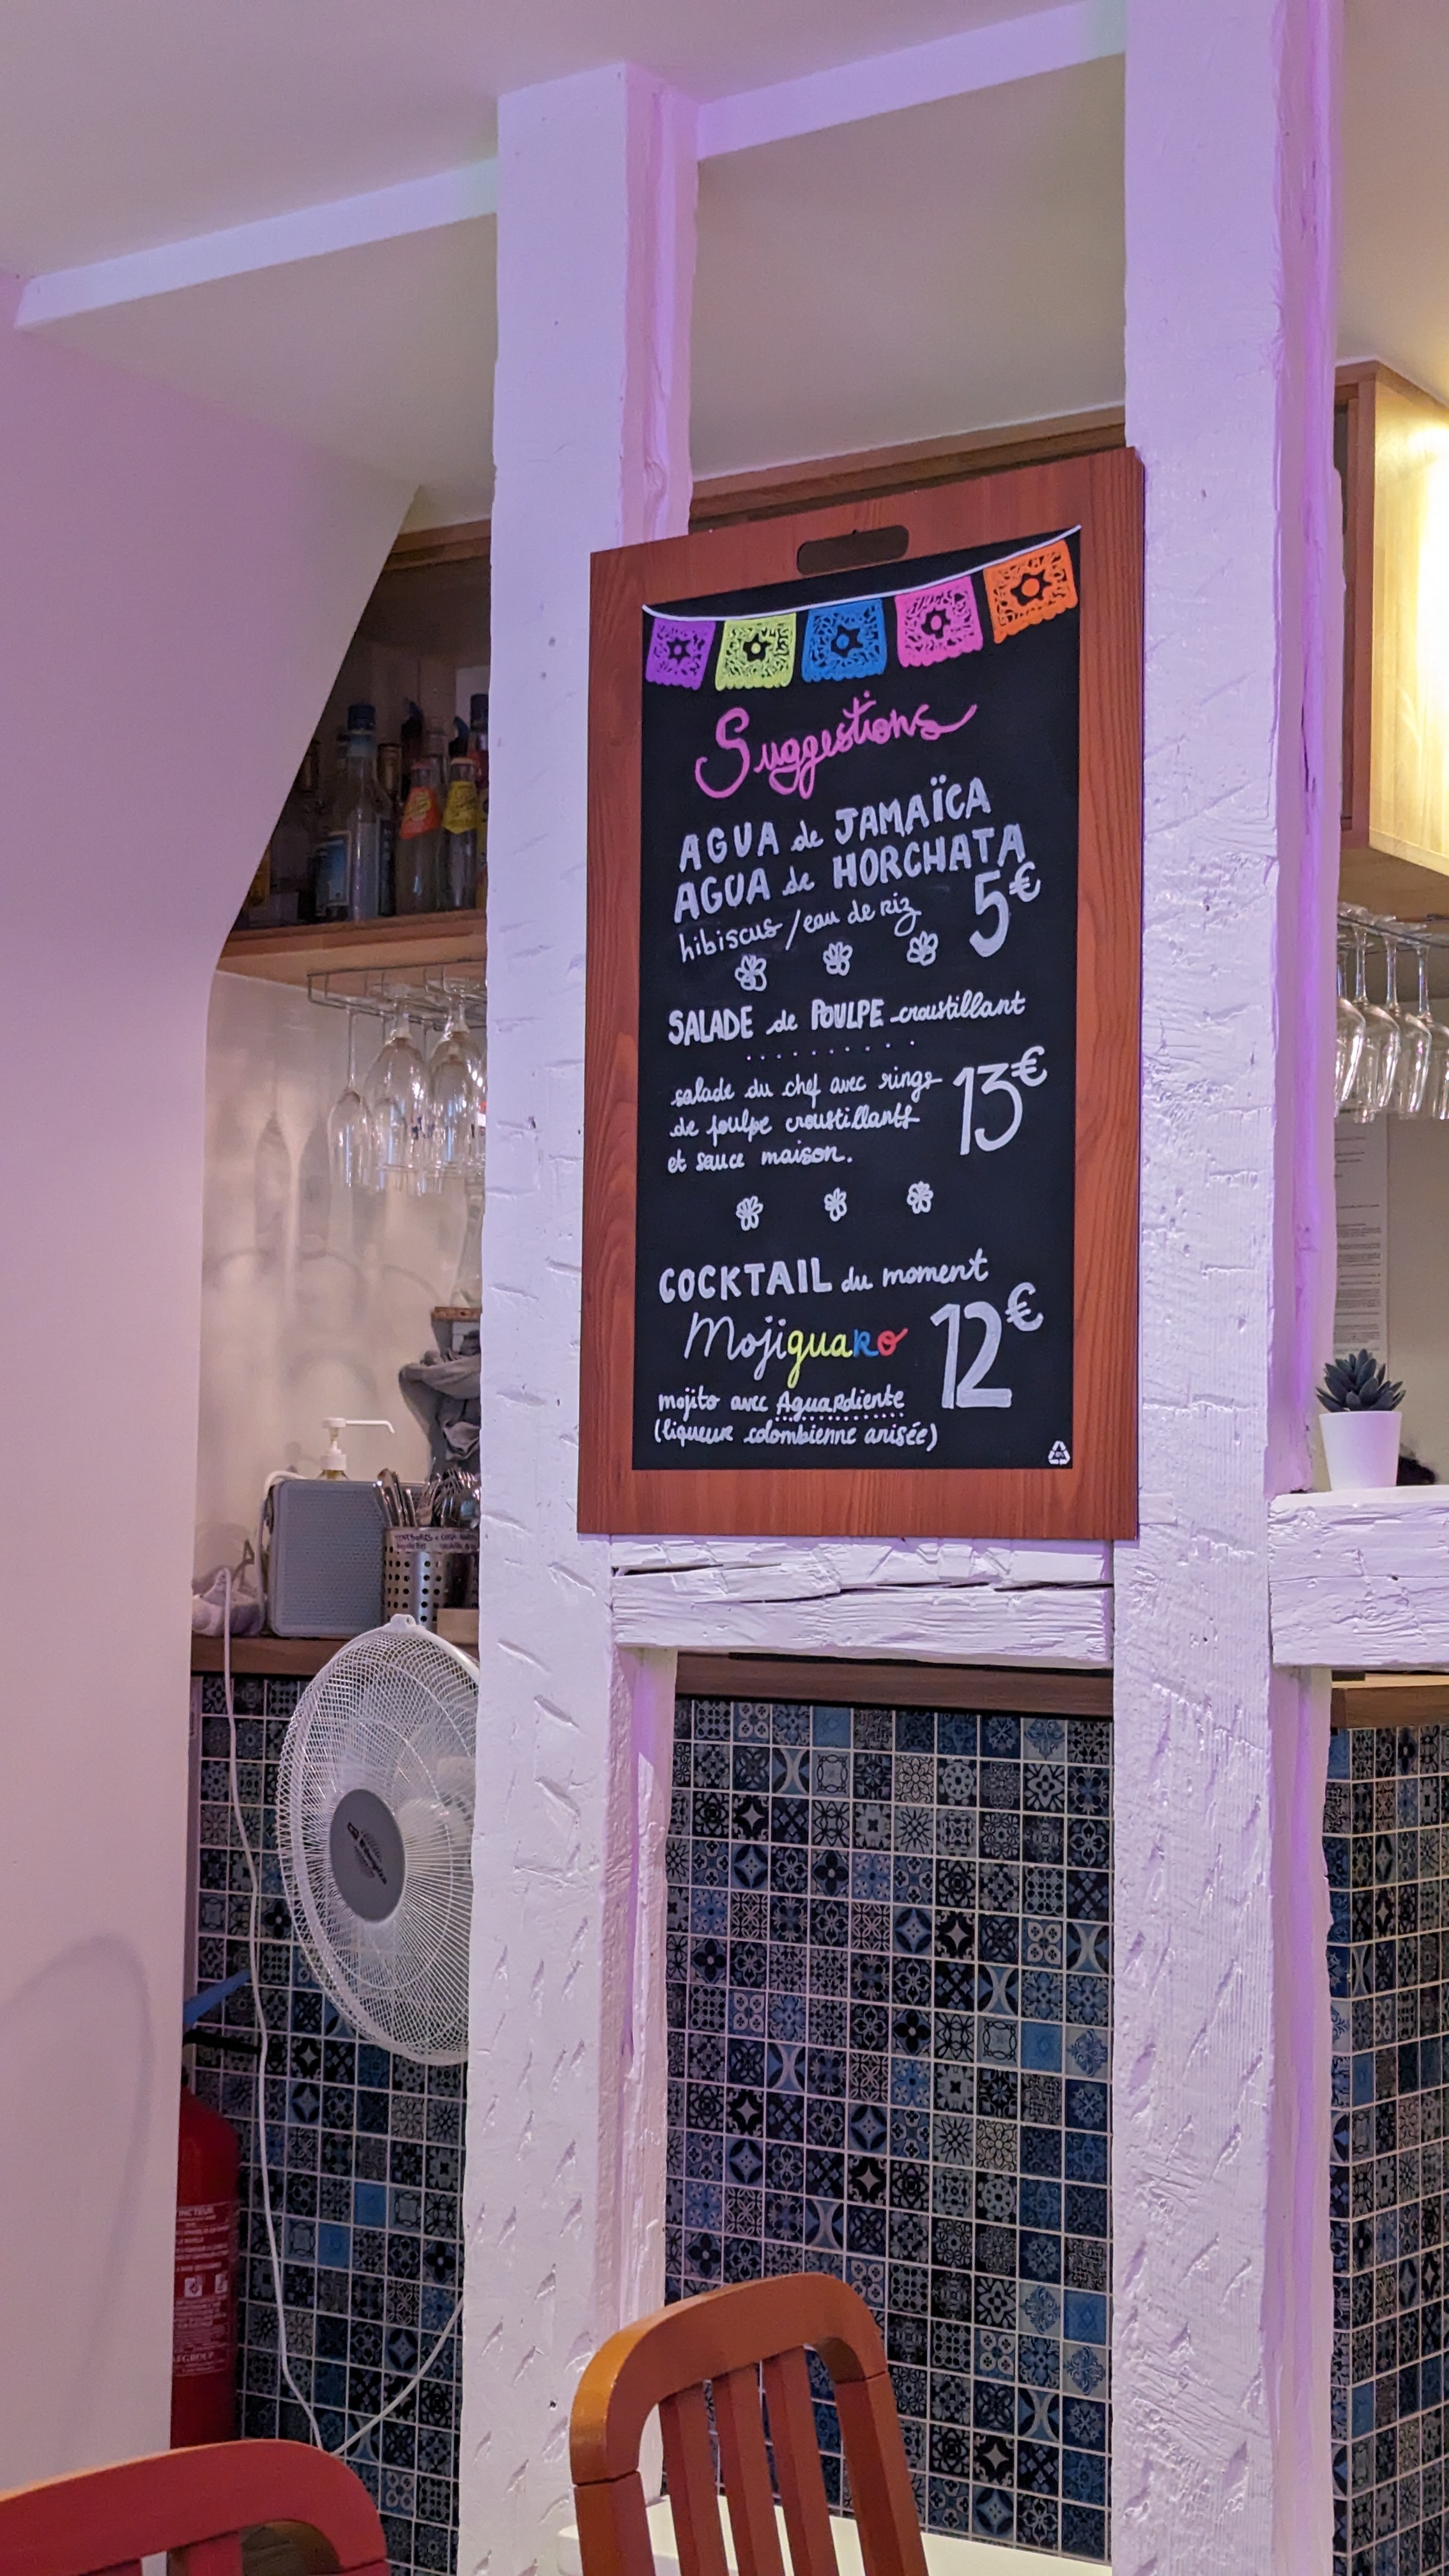 Suggestions
AGUA de JAMAÏCA
AGUA de HORCHATA
hibiscus/eau de riz
5€
SALADE de POULPE croustillant
salade du chef avec rings
de poulpe croustillants
et sauce maison.
13€
COCKTAIL du moment
Mojiguaro
12€
mojito avec Aguardiente
(liqueur colombienne anisée)